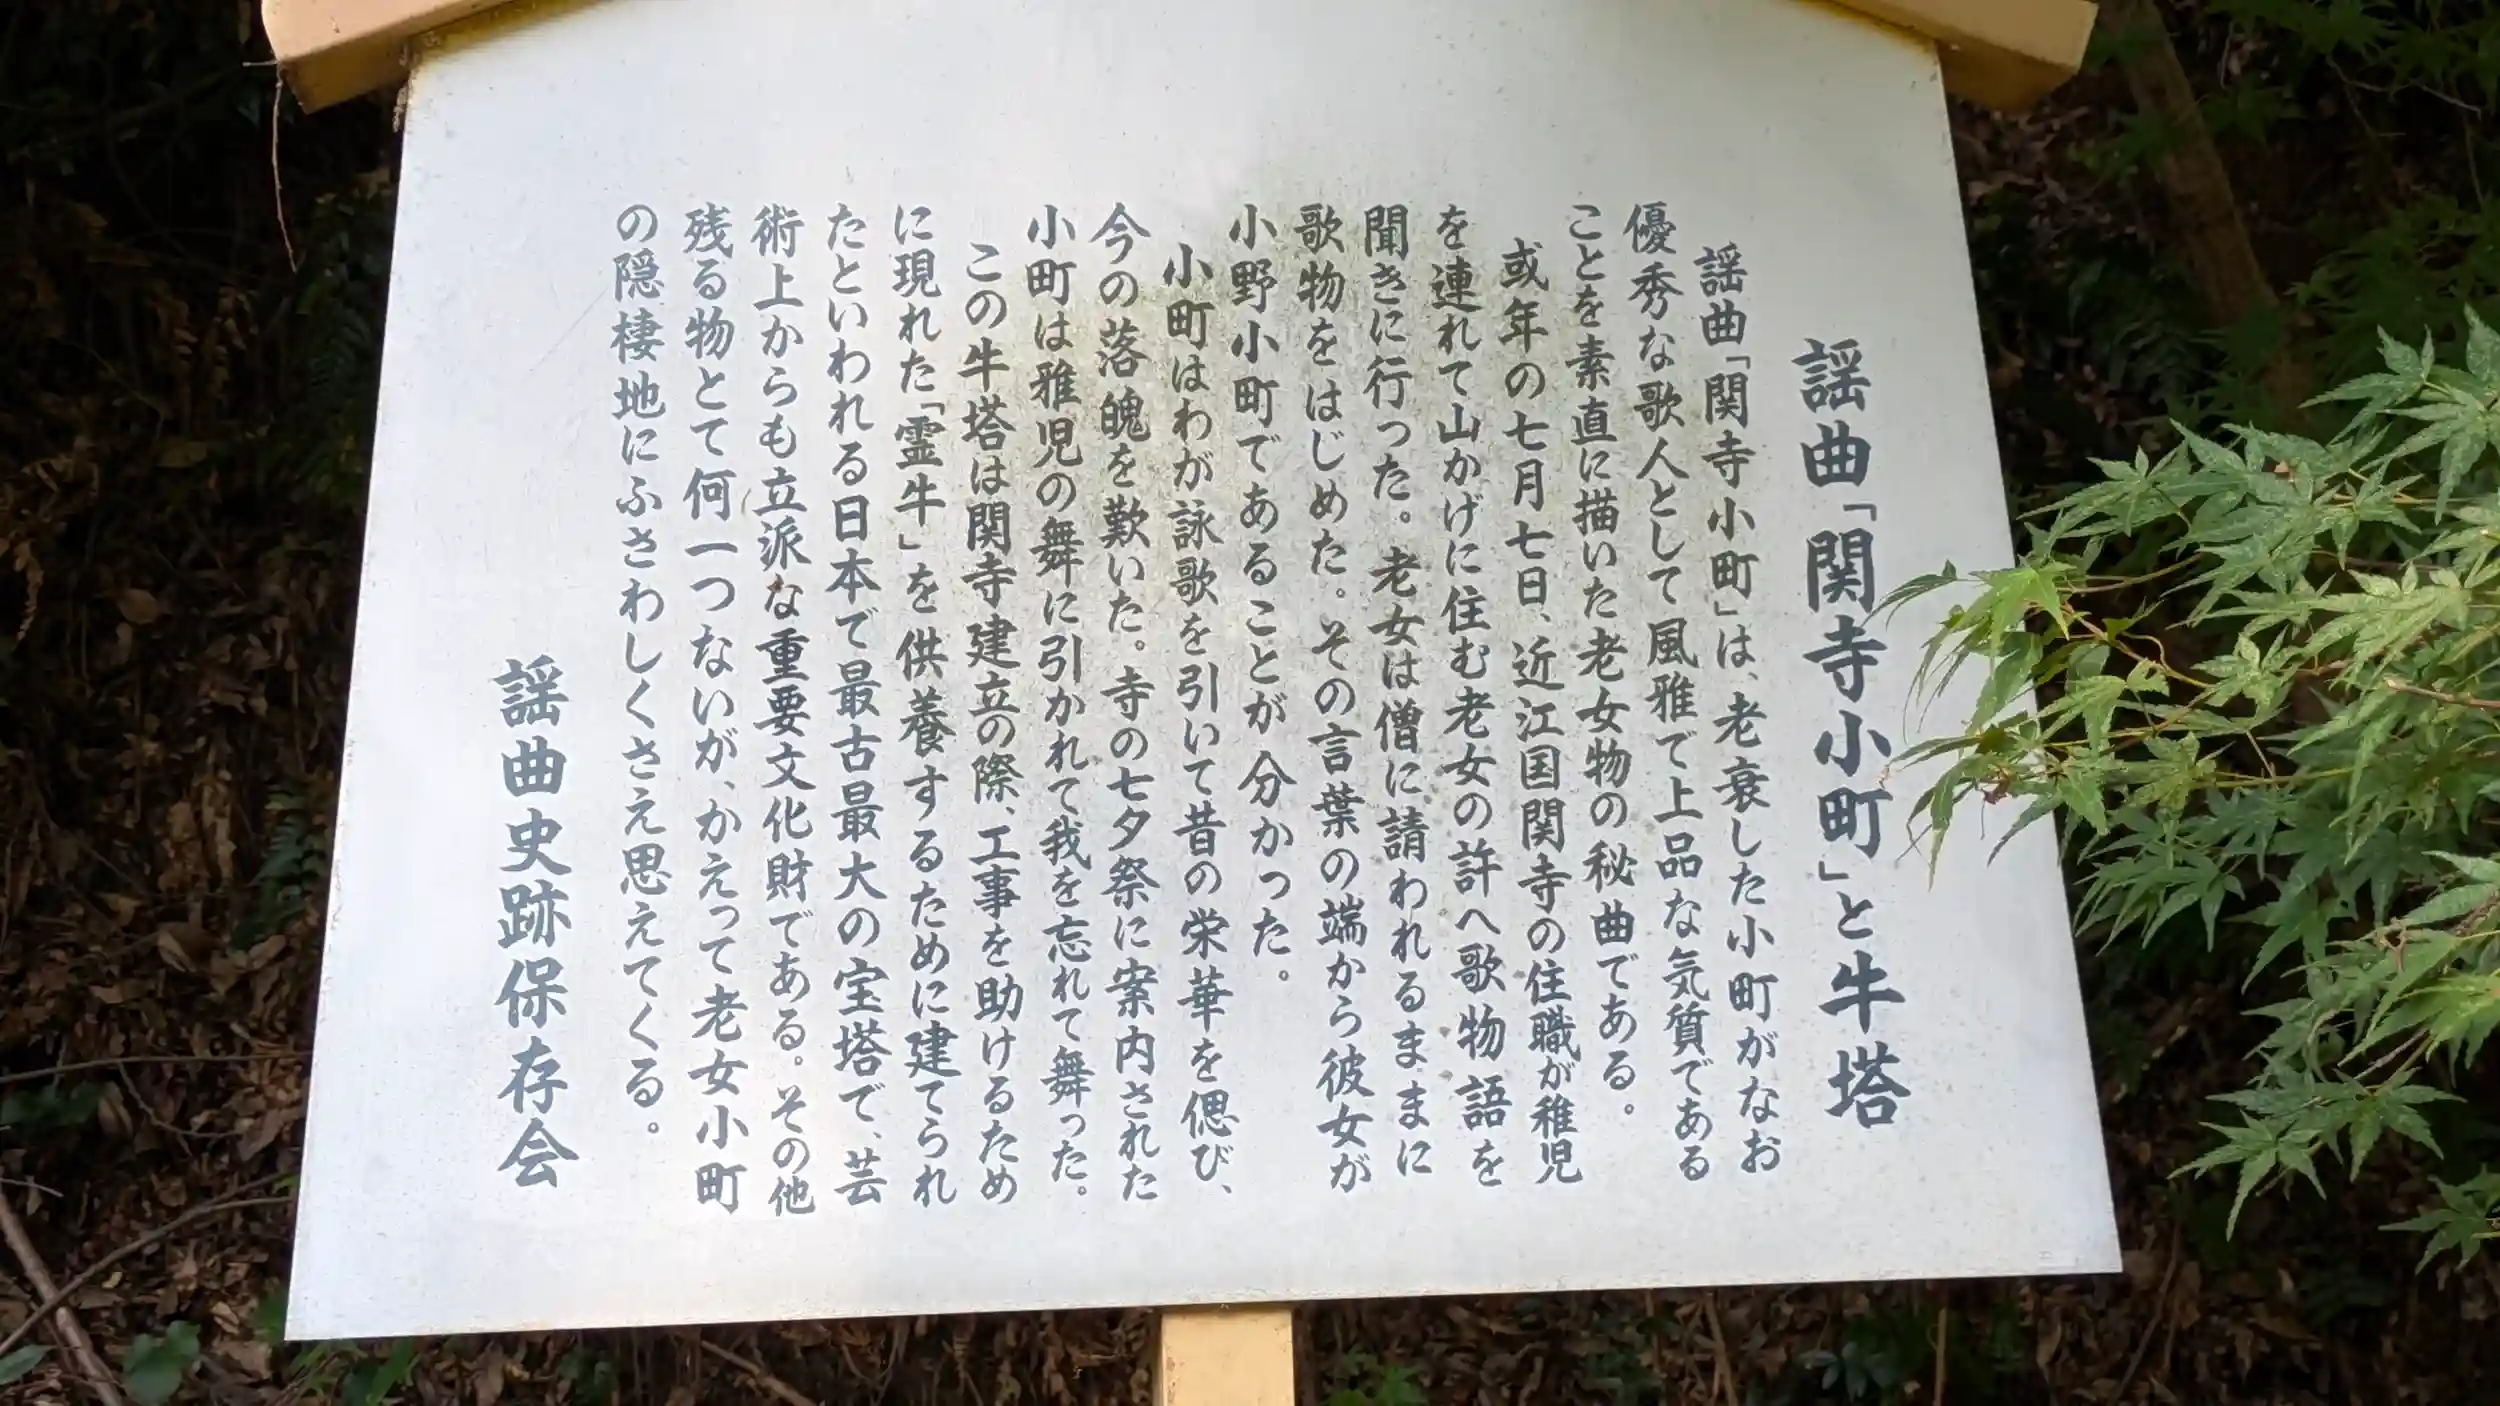 謡曲「関寺小町」と牛塔
謡曲「関寺小町」は、老衰した小町がなお
優秀な歌人として風雅で上品な気質である
ことを素直に描いた老女物の秘曲である。
或年の七月七日、近江国関寺の住職が稚児
を連れて山かげに住む老女の許へ歌物語を
聞きに行った。老女は僧に請われるままに
歌物をはじめた。その言葉の端から彼女が
小野小町であることが分かった。
小町はわが詠歌を引いて昔の栄華を偲び、
今の落魄を歎いた。寺の七夕祭に案内された
小町は雅児の舞に引かれて我を忘れて舞った。
この牛塔は関寺建立の際、工事を助けるため
に現れた「霊牛」を供養するために建てられ
たといわれる日本で最古最大の宝塔で、芸
術上からも立派な重要文化財である。その他
残る物とて何一つないが、かえって老女小町
の隠棲地にふさわしくさえ思えてくる。
謡曲史跡保存会